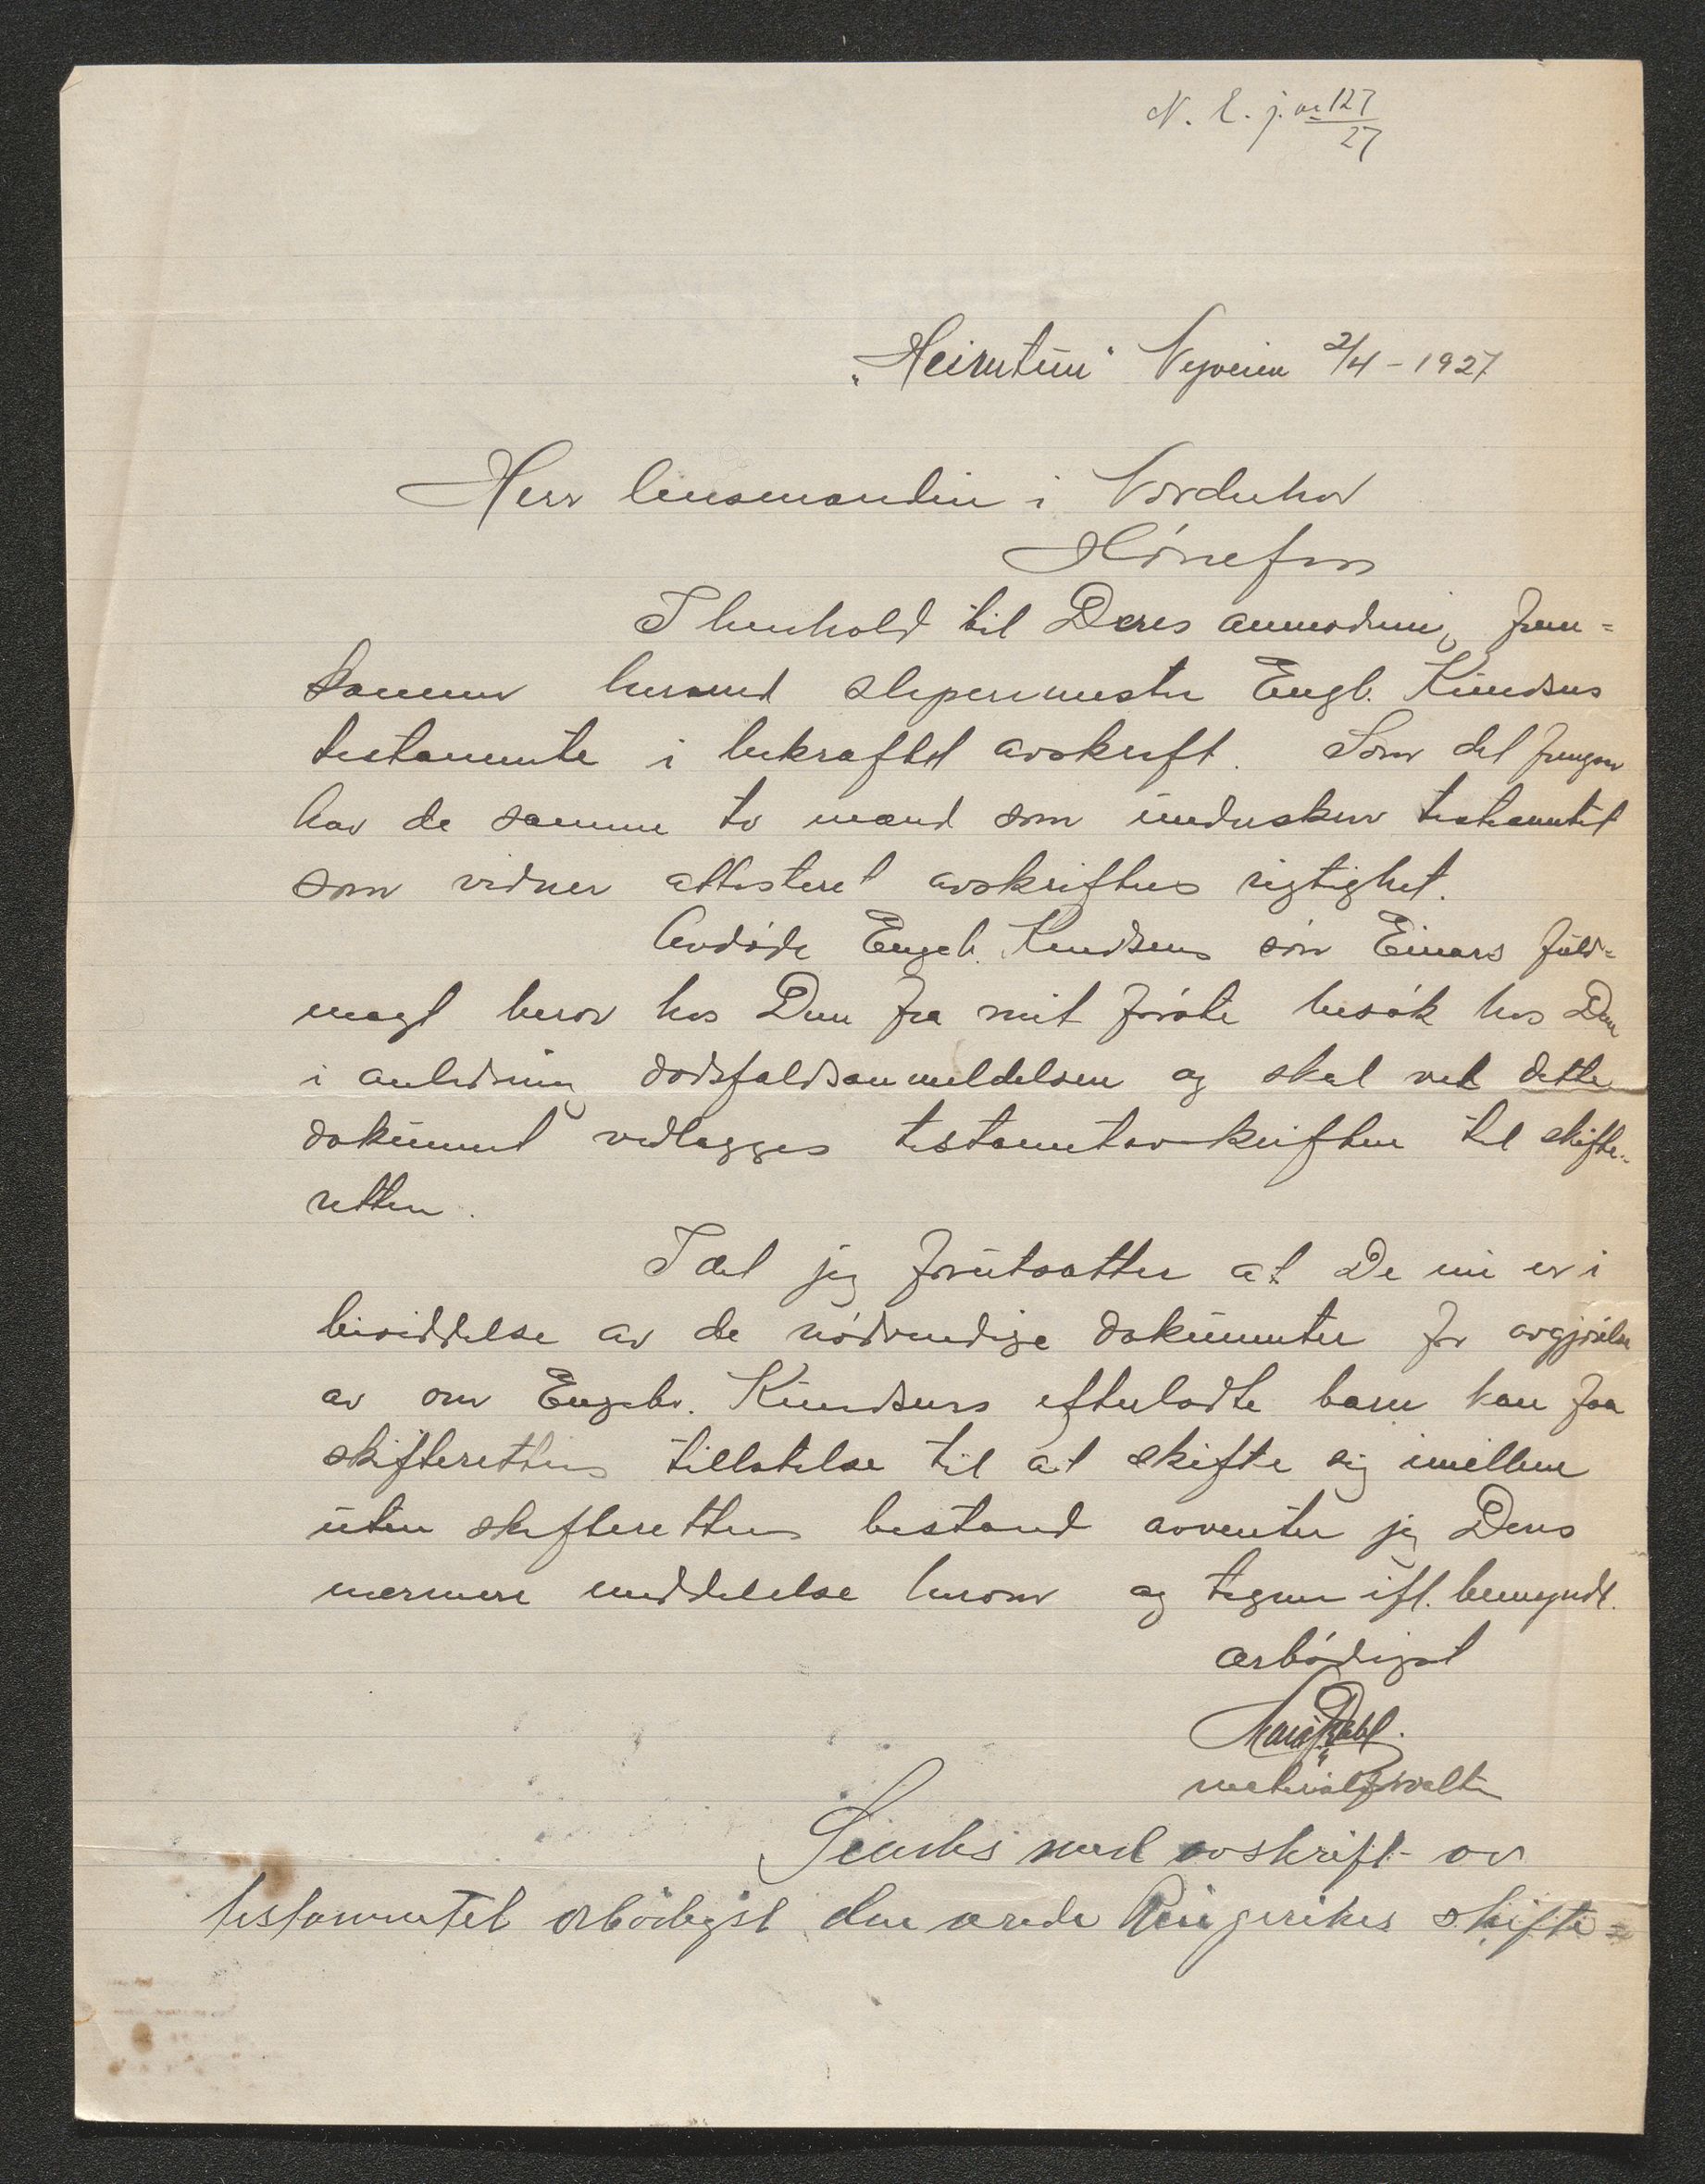 N. L. j. nr 127/27
"Heimtun" Nyveien 2/4 - 1927
Herr lensmanden i Norderhov
Hönefos
I henhold til Deres anmodning frem=
kommer hermed slipermester Engb. Knudsens
testamente i bekræftet avskrift. Som det fremgaar
har de samme to mænd som underskrev testamentet
som vidner attesteret avskriftens rigtighet.
Avdøde Engeb. Knudsens søn Einars fuld=
magt beror hos Dem fra mit første besøk hos Dem
i anledning dødsfaldsanmeldelsen og skal ved dette
dokument vedlægges testamentavskriften til skifte=
retten.
Idet jeg forutsætter at De nu er i
besiddelse av de nødvendige dokumenter for avgjørelse
av om Engebr. Knudsens efterladte barn kan faa
skifterettens tillatelse til at skifte sig imellem
uten skifterettens bistand avventer jeg Deres
nærmere meddelelse herom og tegner ifl. bemyndt.
ærbødigst
Dahl.
materialforvalter
Sendes med avskrift av
testamentet ærbødigst den ærede Ringerikes skifte=